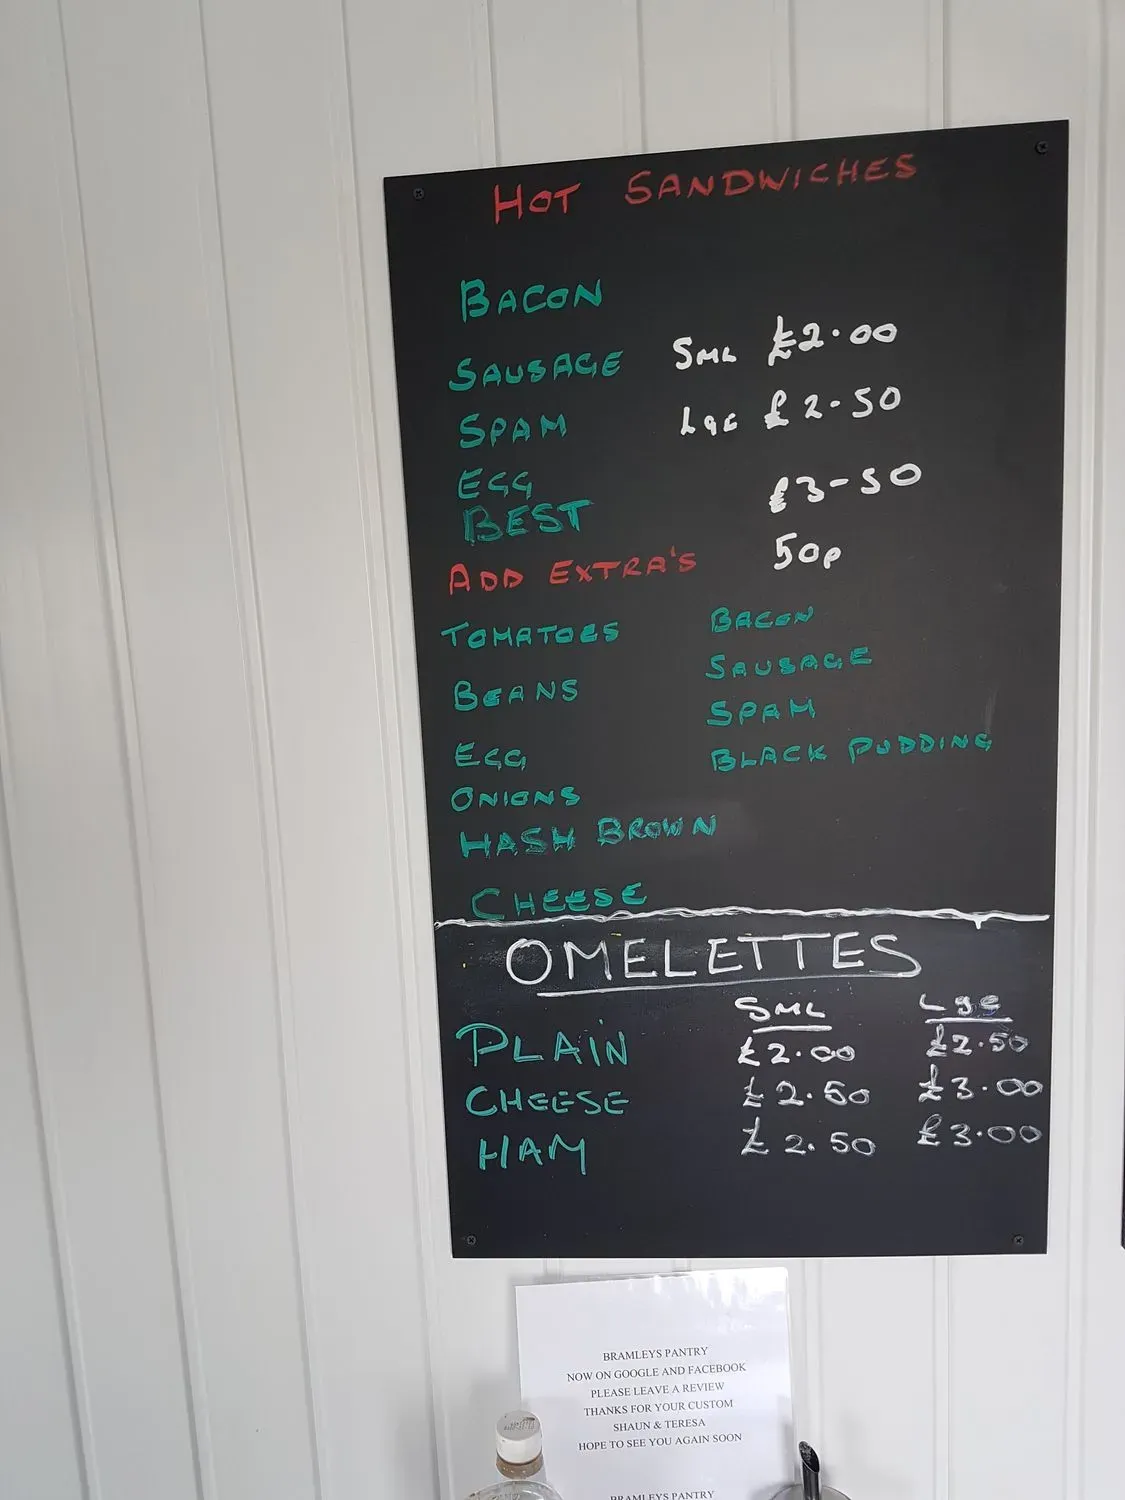 HOT SANDWICHES
BACON
SAUSAGE SML £2.00
SPAM Lge £2-50
EGG
BEST £3-50
ADD EXTRA'S 50p
TOMATOES BACON
SAUSAGE
BEANS SPAM
EGG BLACK PUDDING
ONIONS
HASH BROWN
CHEESE
OMELETTES
SML Lge
PLAIN £2.00 £2.50
CHEESE £2.50 £3.00
HAM £2.50 £3.00
BRAMLEYS PANTRY
NOW ON GOOGLE AND FACEBOOK
PLEASE LEAVE A REVIEW
THANKS FOR YOUR CUSTOM
SHAUN & TERESA
HOPE TO SEE YOU AGAIN SOON
BRAMLEYS PANTRY